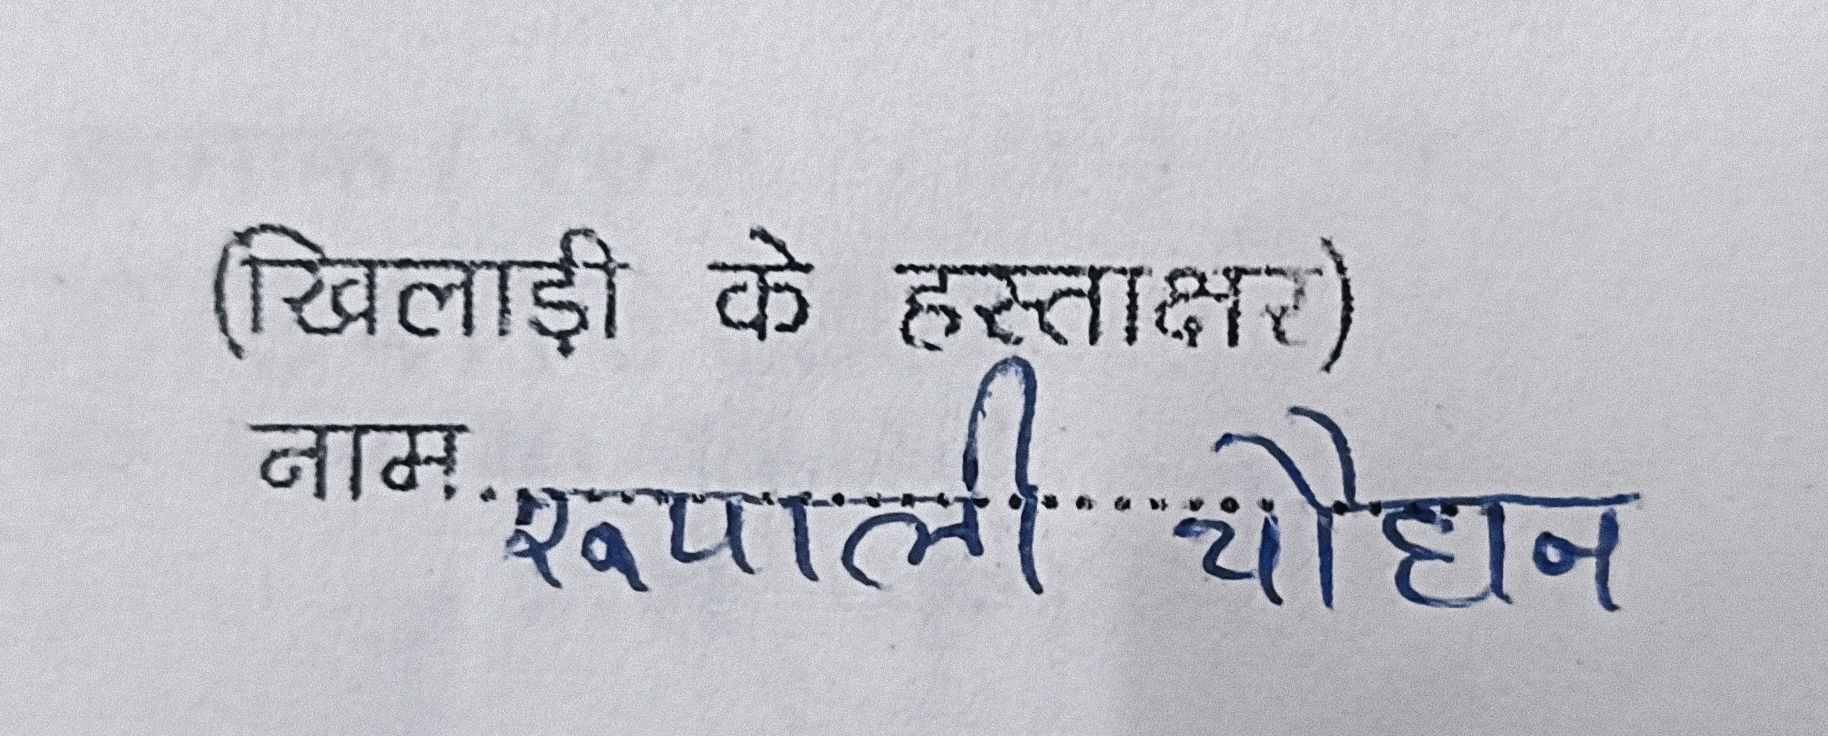 (खिलाड़ी के हस्ताक्षर)
नाम. रूपाली चौधन